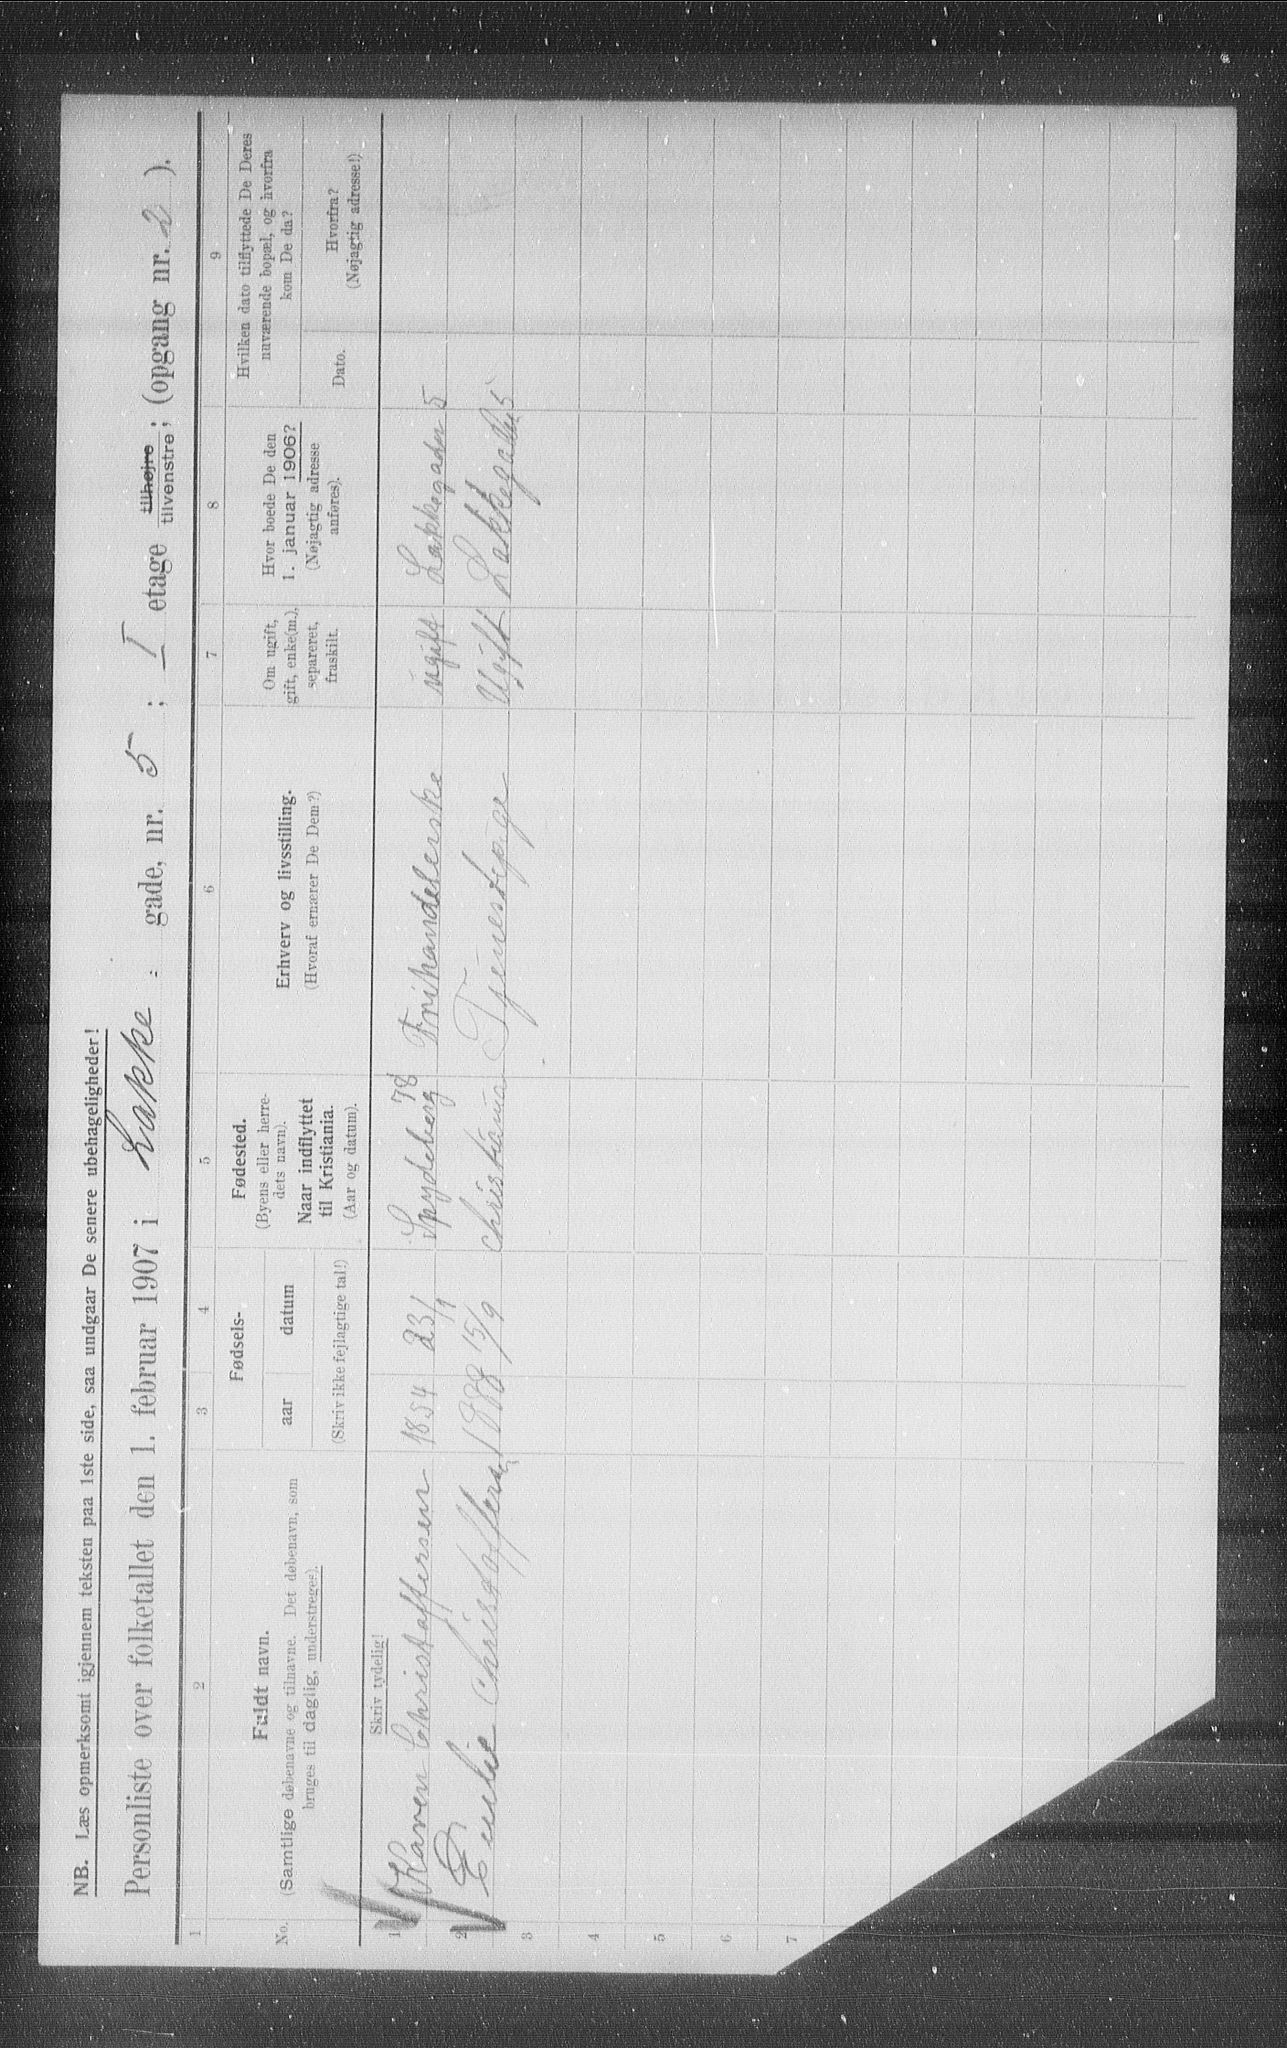 NB. Læs opmerksomt igjennem teksten paa 1ste side, saa undgaar De senere ubehageligheder!
Personliste over folketallet den 1. februar 1907 i Lakke gade, nr. 5 ; I etage tilhøjre tilvenstre ; (opgang nr. 2 ).
1 2 3 4 5 6 7 8 9
No.
Fuldt navn.
(Samtlige døbenavne og tilnavne. Det døbenavn, som
bruges til daglig, understreges).
Fødsels-
aar datum
(Skriv ikke fejlagtige tal!)
Fødested.
(Byens eller herre-
dets navn).
Naar indflyttet
til Kristiania.
(Aar og datum).
Erhverv og livsstilling.
(Hvoraf ernærer De Dem?)
Om ugift,
gift, enke(m.),
separeret,
fraskilt.
Hvor boede De den
1. januar 1906?
(Nøjagtig adresse
anføres).
Hvilken dato tilflyttede De Deres
nuværende bopæl, og hvorfra
kom De da?
Dato.
Hvorfra?
(Nøjagtig adresse!)
Skriv tydelig!
1 Karen Christoffersen 1854 23/1 Spydeberg 78 Frihandelerske ugift Lakkegaden 5
2 Emilie Christoffersen 1888 15/9 Christiania Tjenestepige Ugift Lakkegaden 5
3
4
5
6
7